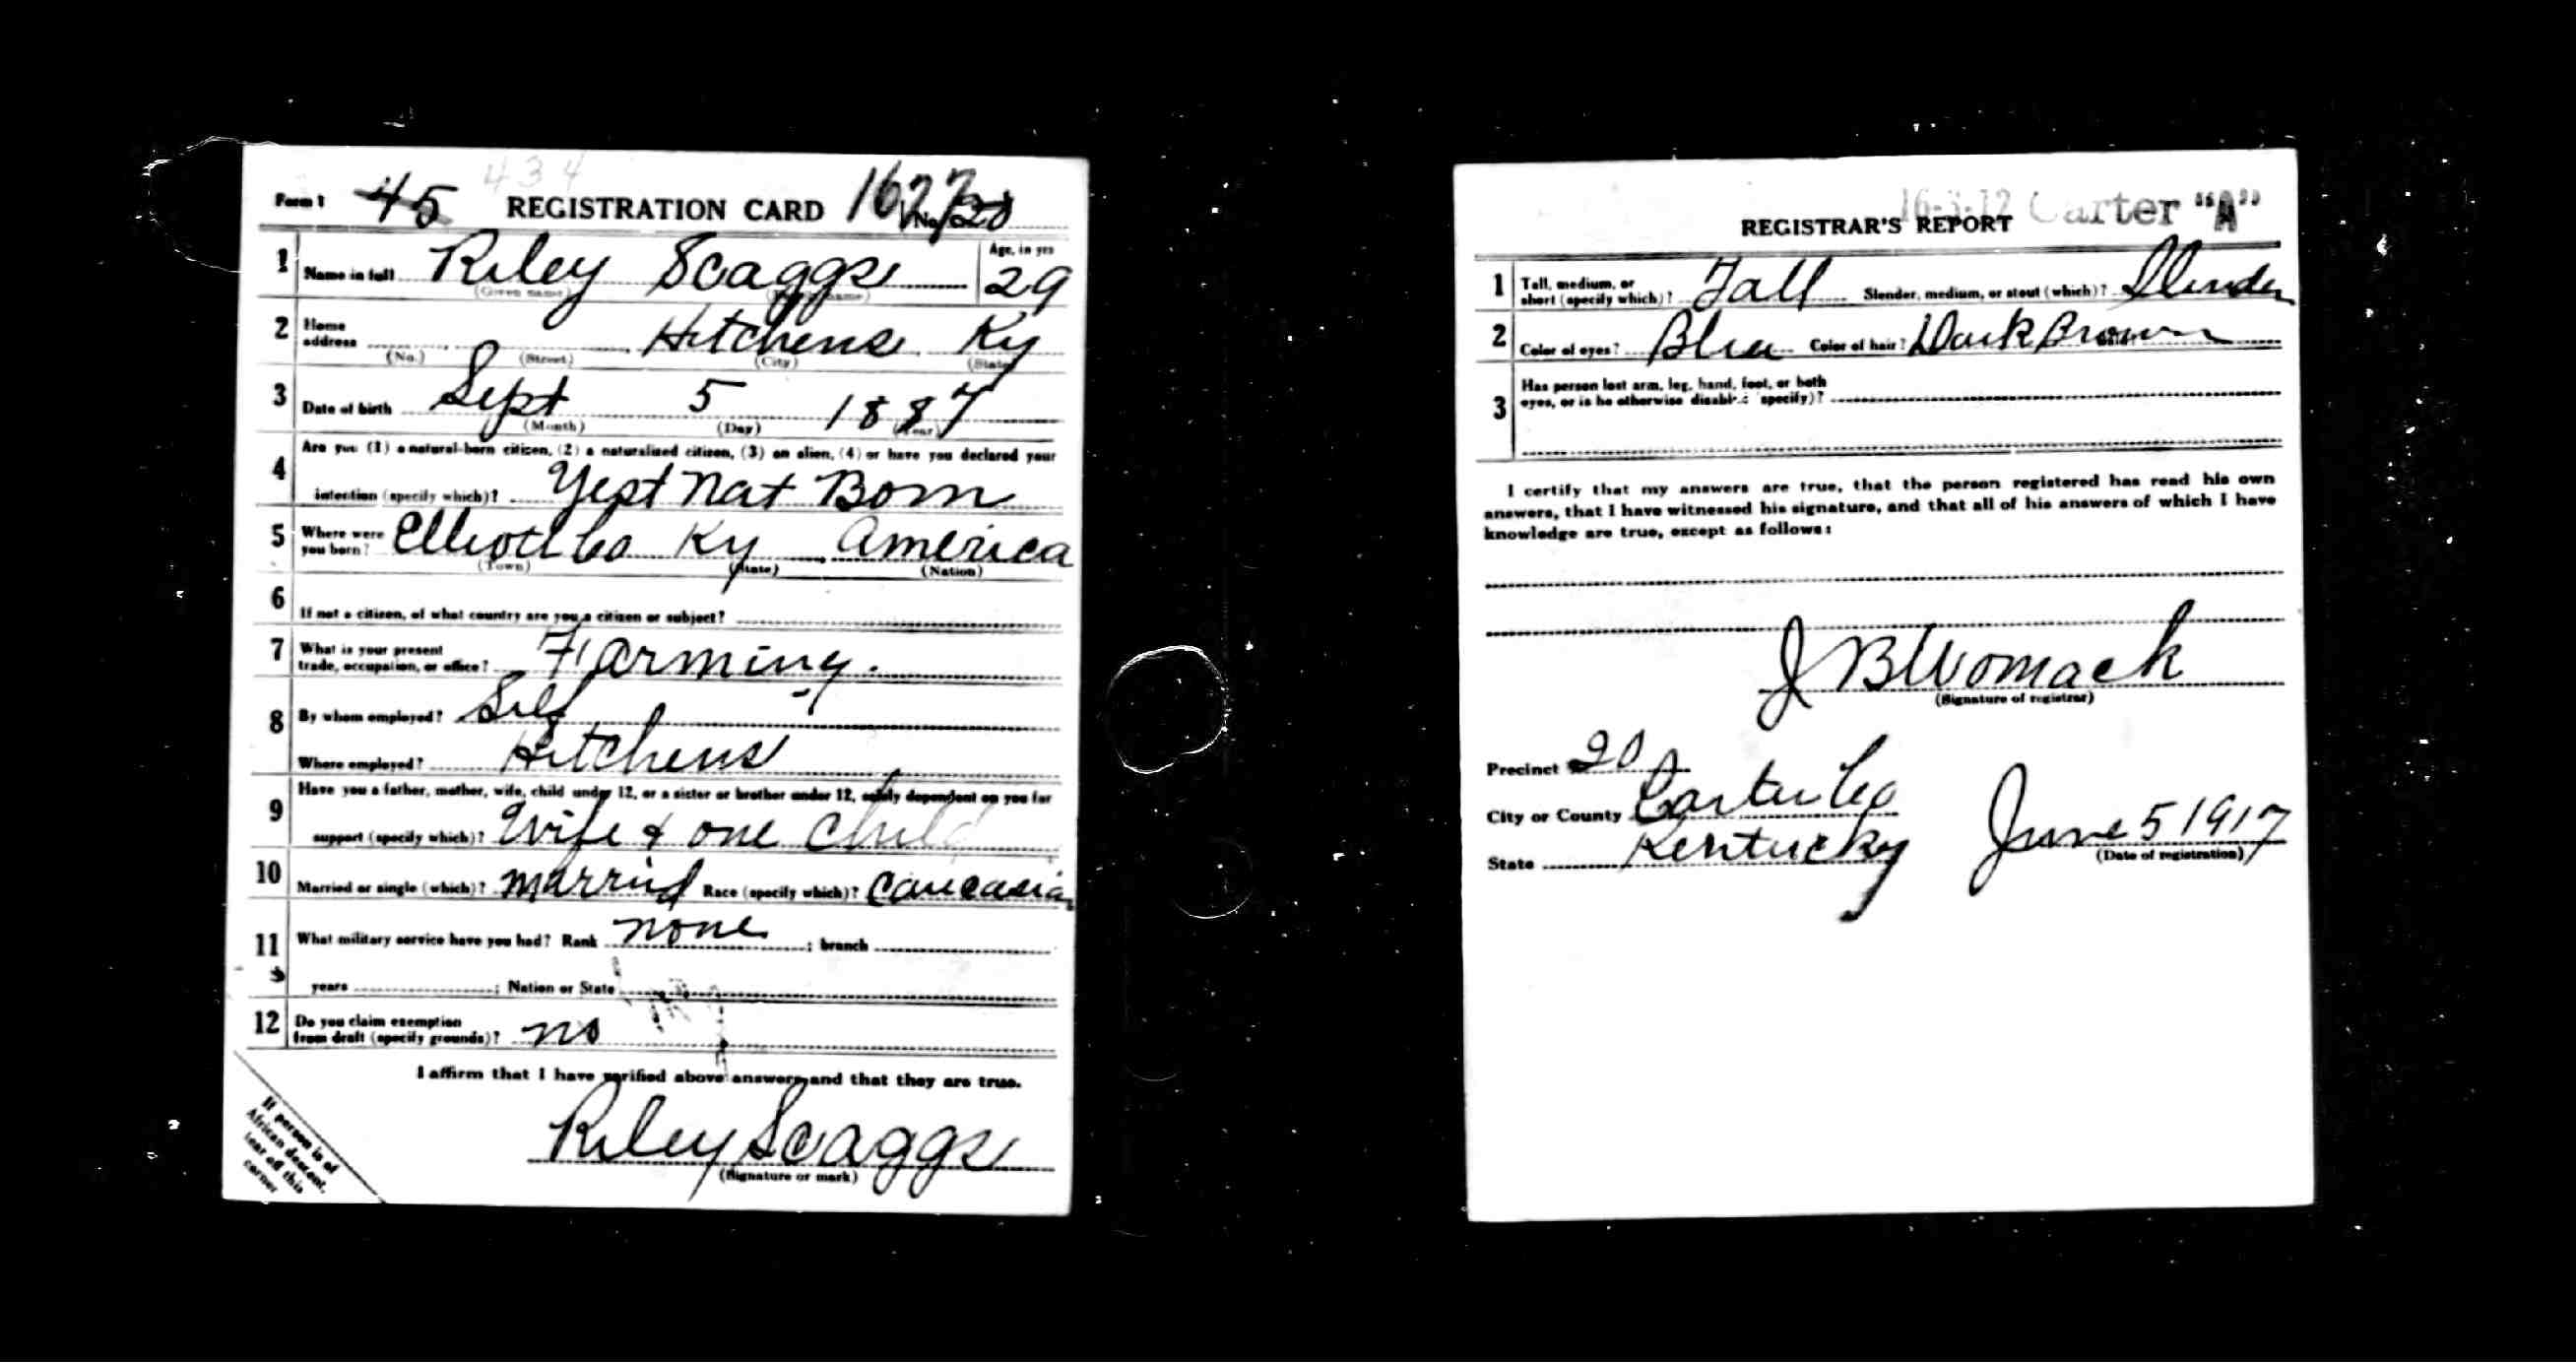 434
Form 1 45 REGISTRATION CARD 1627 No. 20
1 Name in full Riley Scaggs Age, in yrs 29
(Given name) (Family name)
2 Home address Hitchens Ky
(No.) (Street) (City) (State)
3 Date of birth Sept 5 1887
(Month) (Day) (Year)
4 Are you (1) a natural-born citizen, (2) a naturalized citizen, (3) an alien, (4) or have you declared your
intention (specify which)? Yest Nat Born
5 Where were you born? Elliott Co Ky America
(Town) (State) (Nation)
6 If not a citizen, of what country are you a citizen or subject?
7 What is your present
trade, occupation, or office? Farming.
8 By whom employed? Self
Where employed? Hitchens
9 Have you a father, mother, wife, child under 12, or a sister or brother under 12, solely dependent on you for
support (specify which)? Wife & one Child
10 Married or single (which)? Married Race (specify which)? Caucasian
11 What military service have you had? Rank none ; branch
years ; Nation or State
12 Do you claim exemption
from draft (specify grounds)? no
I affirm that I have verified above answers and that they are true.
Riley Scaggs
(Signature or mark)
If person is of
African descent,
tear off this
corner
16-3-12 Carter "A"
REGISTRAR'S REPORT
1 Tall, medium, or
short (specify which)? Tall Slender, medium, or stout (which)? Slender
2 Color of eyes? Blue Color of hair? Dark Brown
3 Has person lost arm, leg, hand, foot, or both
eyes, or is he otherwise disabled (specify)?
I certify that my answers are true, that the person registered has read his own
answers, that I have witnessed his signature, and that all of his answers of which I have
knowledge are true, except as follows:
J B Womack
(Signature of registrar)
Precinct 20
City or County Carter Co
State Kentucky June 5 1917
(Date of registration)